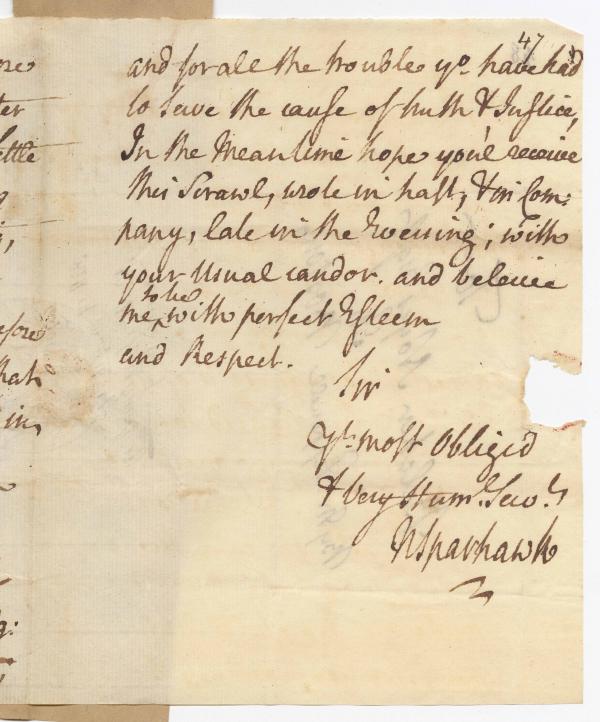 47
and for all the trouble yo. have had
to serve the cause of truth & Justice,
In the Meantime hope you'l receive
this Scrawl, wrote in hast, & in Com:
pany, late in the Evening; with
your Usual candor. and beleive
to be
me, with perfect Esteem
and Respect.
Sir
Yr. most Obligi'd
& Very Hum. Serv.t
N Sparhawk
ter
ettle
efore
that
in